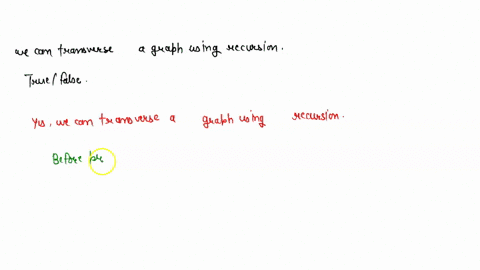 we can transverse a graph using recursion.
True/false.
Yes, we can transverse a graph using recursion.
Before